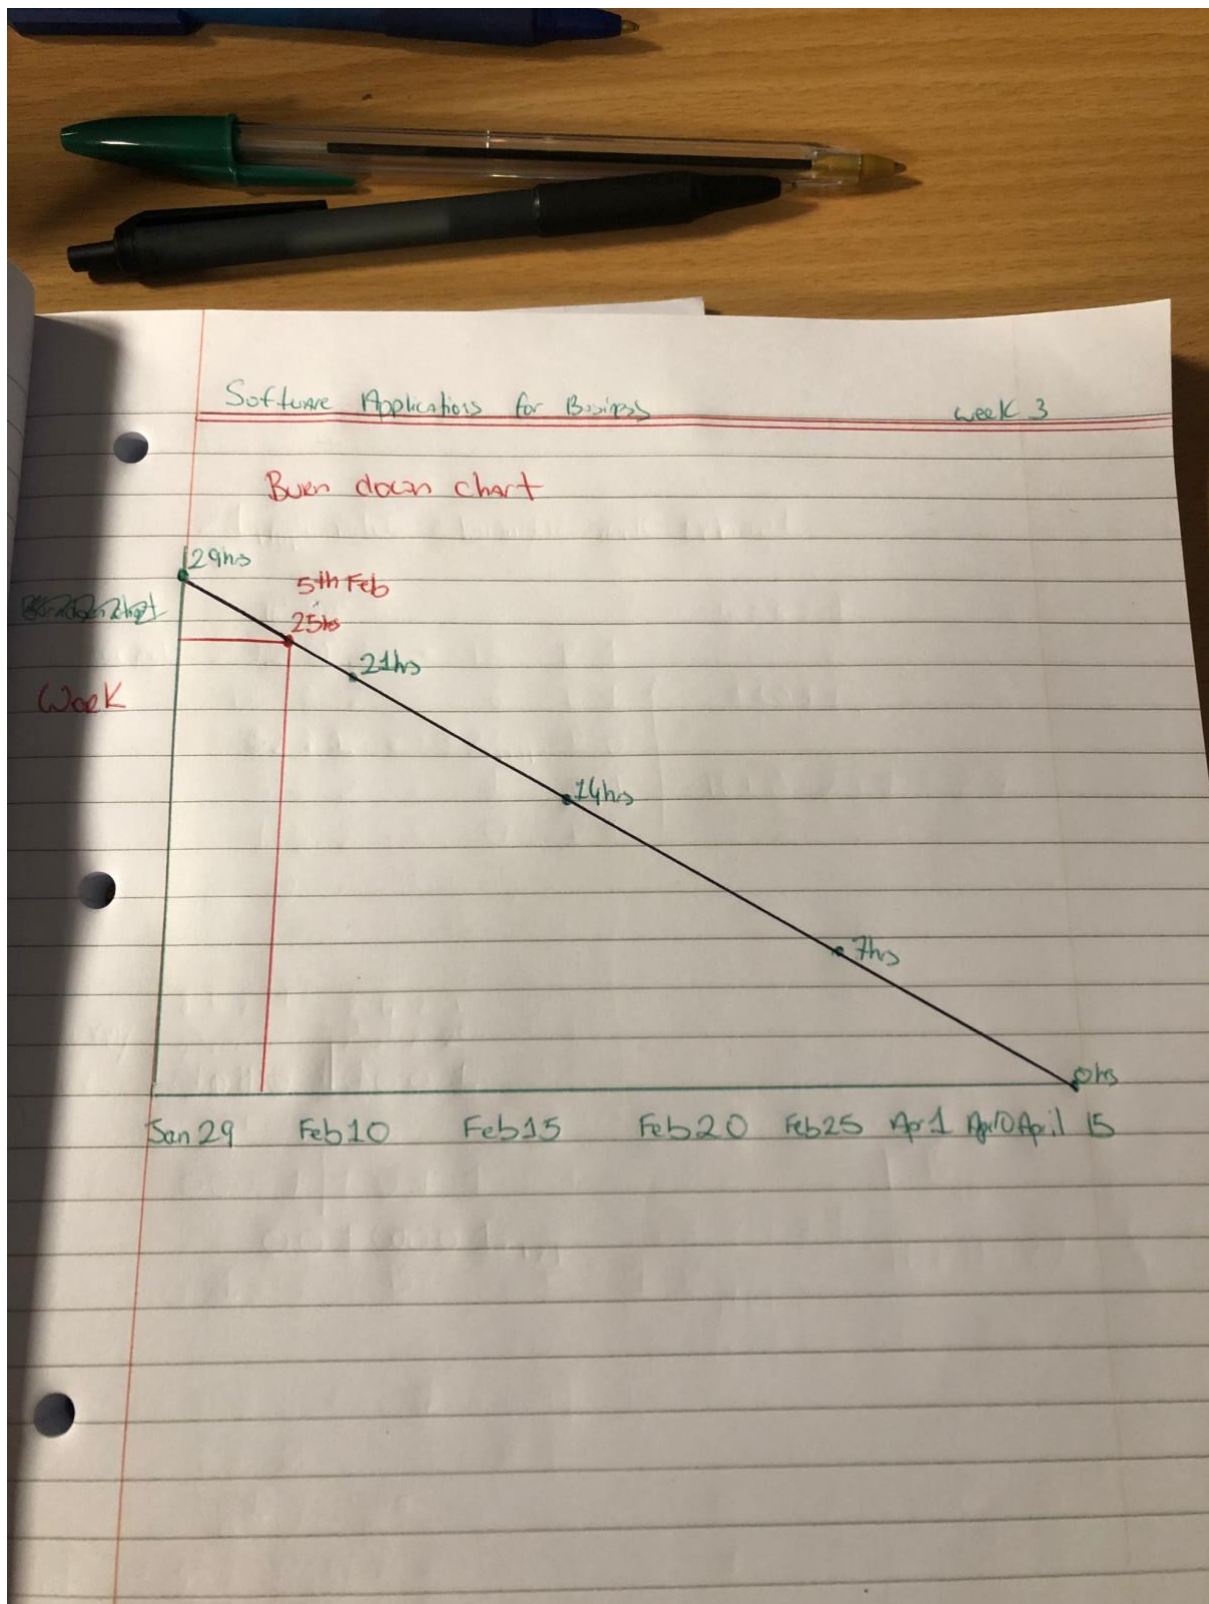 Software Applications for Business week 3
Burn down chart
29hrs
5th Feb
25hrs
21hrs
Work
14hrs
7hrs
0hrs
Jan 29 Feb 10 Feb 15 Feb 20 Feb 25 Apr 1 Apr10 April 15